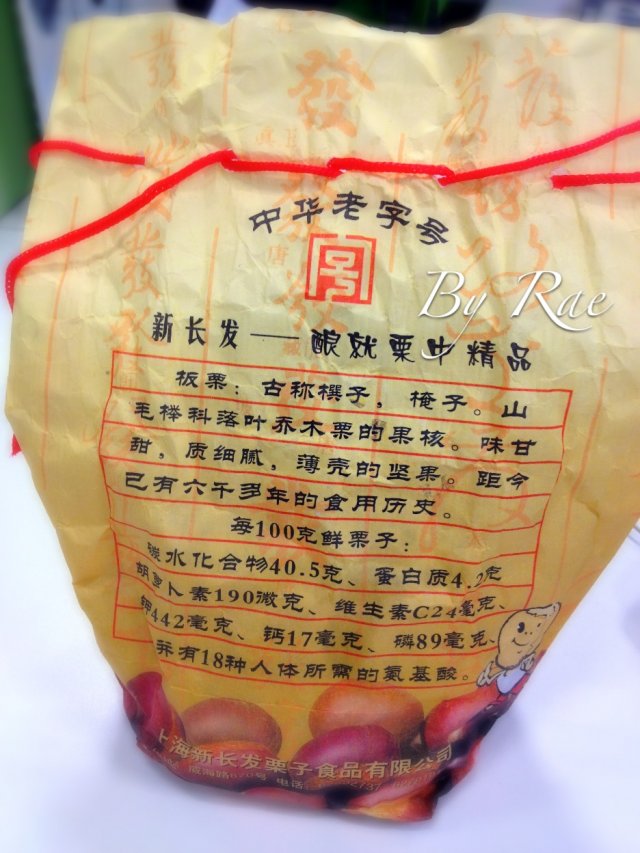 發
中华老字号
By Rae
新长发——酿就栗中精品
板栗：古称榠子，掩子。山
毛榉科落叶乔木栗的果核。味甘
甜，质细腻，薄壳的坚果。距今
已有六千多年的食用历史。
每100克鲜栗子：
碳水化合物40.5克、蛋白质4.2克
胡萝卜素190微克、维生素C24毫克、
钾442毫克、钙17毫克、磷89毫克、
并有18种人体所需的氨基酸。
上海新长发栗子食品有限公司
威海路870号 电话